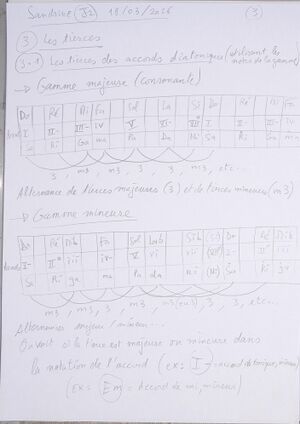 Sandrine (J2) 18/03/2026 (3)
(3) Les tierces
(3.1) Les tierces des accords diatoniques (utilisant les notes de la gamme)
→ Gamme majeure (consonante)
Do Ré Mi Fa Sol La Si Do Ré Mi Fa
I II- III- IV V VI- VII I II- III- IV
Ri Ga ma Pa Da Ni Sa Ri Ga ma
3, m3, m3, 3, 3, m3, 3, etc...
Alternance de tierces majeures (3) et de tierces mineures (m3)
→ Gamme mineure
Do Ré Mib Fa Sol Lab Sib (Si) Do Ré Mib
Ri ga ma Pa da ni (Ni) Sa Ri ga
m3, m3, 3, m3, m3 (ou 3), 3, 3, etc...
Alternance majeur / mineur...
On voit si la tierce est majeure ou mineure dans
la notation de l'accord (ex: I- = accord de tonique, mineur)
(ex: Em = accord de mi, mineur)